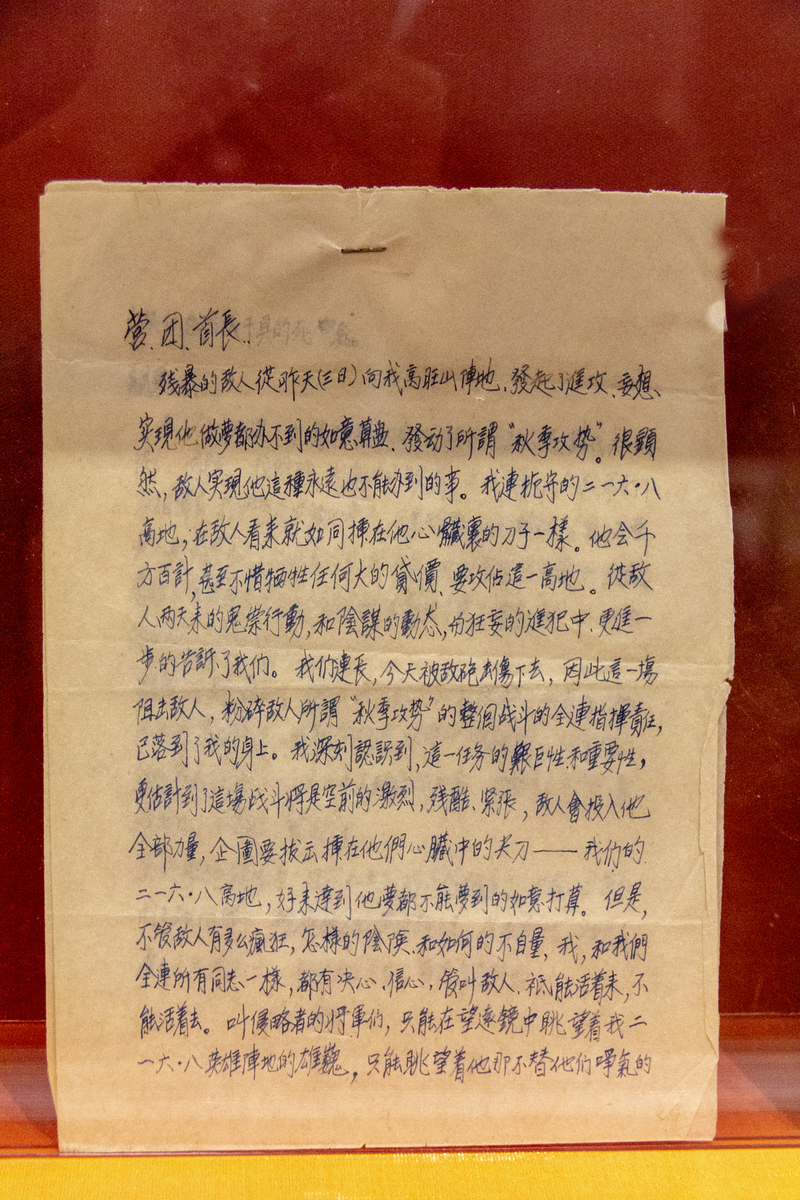 营、团、首長：
残暴的敌人從昨天(三日)向我高旺山陣地、發起了進攻、妄想、
实現他做夢都办不到的如意算盘、發动了所謂“秋季攻势”。很顕
然，敌人实現他這種永遠也不能办到的事。我連扼守的二一六·八
高地，在敌人看来就如同揷在他心臟裏的刀子一樣。他会千
方百計，甚至不惜牺牲任何大的貸價、要攻佔這一高地。從敌
人两天来的鬼祟行動，和陰謀的動态，狂妄的進犯中、更進一
步的告訴了我们。我们連長，今天被敌砲击傷下去，因此這一場
阻击敌人，粉碎敌人所謂“秋季攻势”的整個战斗的全連指揮責任，
已落到了我的身上。我深刻認識到，這一任务的艱巨性和重要性，
更估計到了這場战斗將是空前的激烈，残酷、紧張，敌人會投入他
全部力量，企圖要拔去揷在他們心臟中的尖刀——我们的
二一六·八高地，好来達到他夢都不能夢到的如意打算。但是，
不管敌人有多么瘋狂，怎樣的陰险、和如何的不自量，我，和我們
全連所有同志一樣，都有决心、信心，管叫敌人、祗能活着来，不
能活着去。叫侵略者的將軍们，只能在望遠鏡中眺望着我二
一六·八英雄陣地的雄巍，只能眺望着他那不替他们争氣的